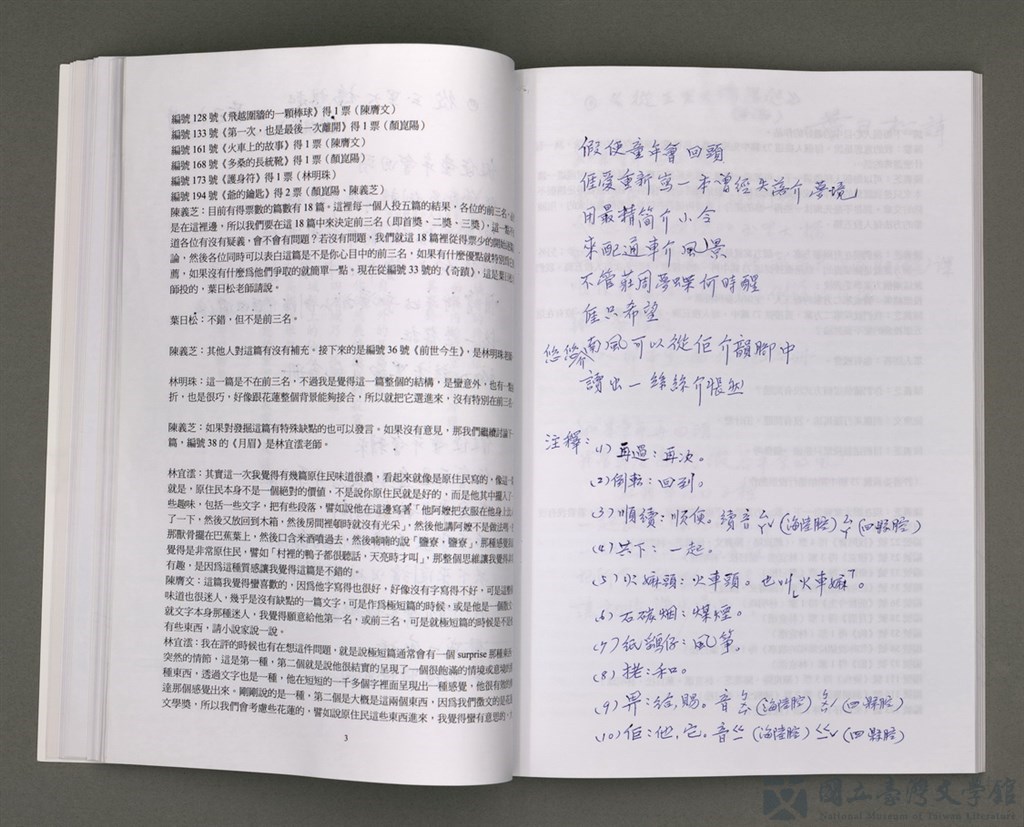 編號 128 號《飛越圍牆的一顆棒球》得 1 票（陳膺文）
編號 133 號《第一次，也是最後一次離開》得 1 票（顏崑陽）
編號 161 號《火車上的故事》得 1 票（陳膺文）
編號 168 號《多桑的長統靴》得 1 票（顏崑陽）
編號 173 號《護身符》得 1 票（林明珠）
編號 194 號《爺的鑰匙》得 2 票（顏崑陽、陳義芝）
陳義芝：目前有得票數的篇數有 18 篇，這裡每一個人投五篇的結果，各位的前三名，
是在這裡邊，所以我們要在這 18 篇中來決定前三名（即首獎、二獎、三獎），這一點
道各位有沒有疑義，會不會有問題？若沒有問題，我們就這 18 篇裡從得票少的開始
論，然後各位同時可以表白這篇是不是你心目中的前三名，如果有什麼優點就特別
薦，如果沒有什麼為他們爭取的就簡單一點。現在從編號 33 號的《奇蹟》，這是葉日松
師投的，葉日松老師請說。
葉日松：不錯，但不是前三名。
陳義芝：其他人對這篇有沒有補充。接下來的是編號 36 號《前世今生》，是林明珠老師
林明珠：這一篇是不在前三名，不過我是覺得這一篇整個的結構，是蠻意外，也有一點
折，也是很巧，好像跟花蓮整個背景能夠接合，所以就把它選進來，沒有特別在前三名
陳義芝：如果對發掘這篇有特殊缺點的也可以發言。如果沒有意見，那我們繼續討論下一
篇，編號 38 的《月眉》是林宜澐老師。
林宜澐：其實這一次我覺得有幾篇原住民味道很濃，看起來就像是原住民寫的，像這一
就是，原住民本身不是一個絕對的價值，不是說你原住民就是好的，而是他其中摑入了
些趣味，包括一些文字，把有些段落，譬如說他在這邊寫著「他阿嬤把衣服在他身上
了一下，然後又放回到木箱，然後房間裡頓時就沒有光采」，然後他講阿嬤不是做法
那獸骨擺在巴蕉葉上，然後口含米酒噴過去，然後喃喃的說「鹽寮，鹽寮」，那種感覺
覺得是非常原住民，譬如「村裡的鴨子都很聽話，天亮時才叫」，那整個思維讓我覺得
有趣，是因為這種質感讓我覺得這篇是不錯的。
陳膺文：這篇我覺得蠻喜歡的，因為他字寫得也很好，好像沒有字寫得不好，可是這
味道也很迷人，幾乎是沒有缺點的一篇文字，可是作為極短篇的時候，或是他是一個散文
就文字本身那種迷人，我覺得願意給他第一名，或前三名，可是就極短篇的時候是不是
有些東西，請小說家說一說。
林宜澐：我在評的時候也有在想這件問題，就是說極短篇通常會有一個 surprise 那種東西
突然的情節，這是第一種，第二個就是說他很結實的呈現了一個很飽滿的情境或意境的
種東西，透過文字也是一種，他在短短的一千多個字裡面呈現出一種感覺，他很有效的
達那個感覺出來。剛剛說的是一種，第二個是大概是這兩個東西，因為我們徵文的是花蓮
文學獎，所以我們會考慮些花蓮的，譬如說原住民這些東西進來，我覺得蠻有意思的，
3
假使童年會回頭
𠊎愛重新寫一本曾經失落介夢境
用最精簡介小令
來配通車介風景
不管莊周夢蝶何時醒
𠊎只希望
悠悠介南風可以從佢介韻腳中
讀出一絲絲介悵然
注釋：(1) 再過：再次。
(2) 倒轉：回到。
(3) 順續：順便。續音ㄙㄚˇ（海陸腔）ㄙㄚ（四縣腔）
(4) 共下：一起。
(5) 火嫲頭：火車頭。也叫「火車嫲」。
(6) 石碳烟：煤煙。
(7) 紙鷂仔：風箏。
(8) 摎：和。
(9) 畀：給，賜。音（海陸腔）（四縣腔）
(10) 佢：他，它。音（海陸腔）（四縣腔）
國立臺灣文學館
National Museum of Taiwan Literature